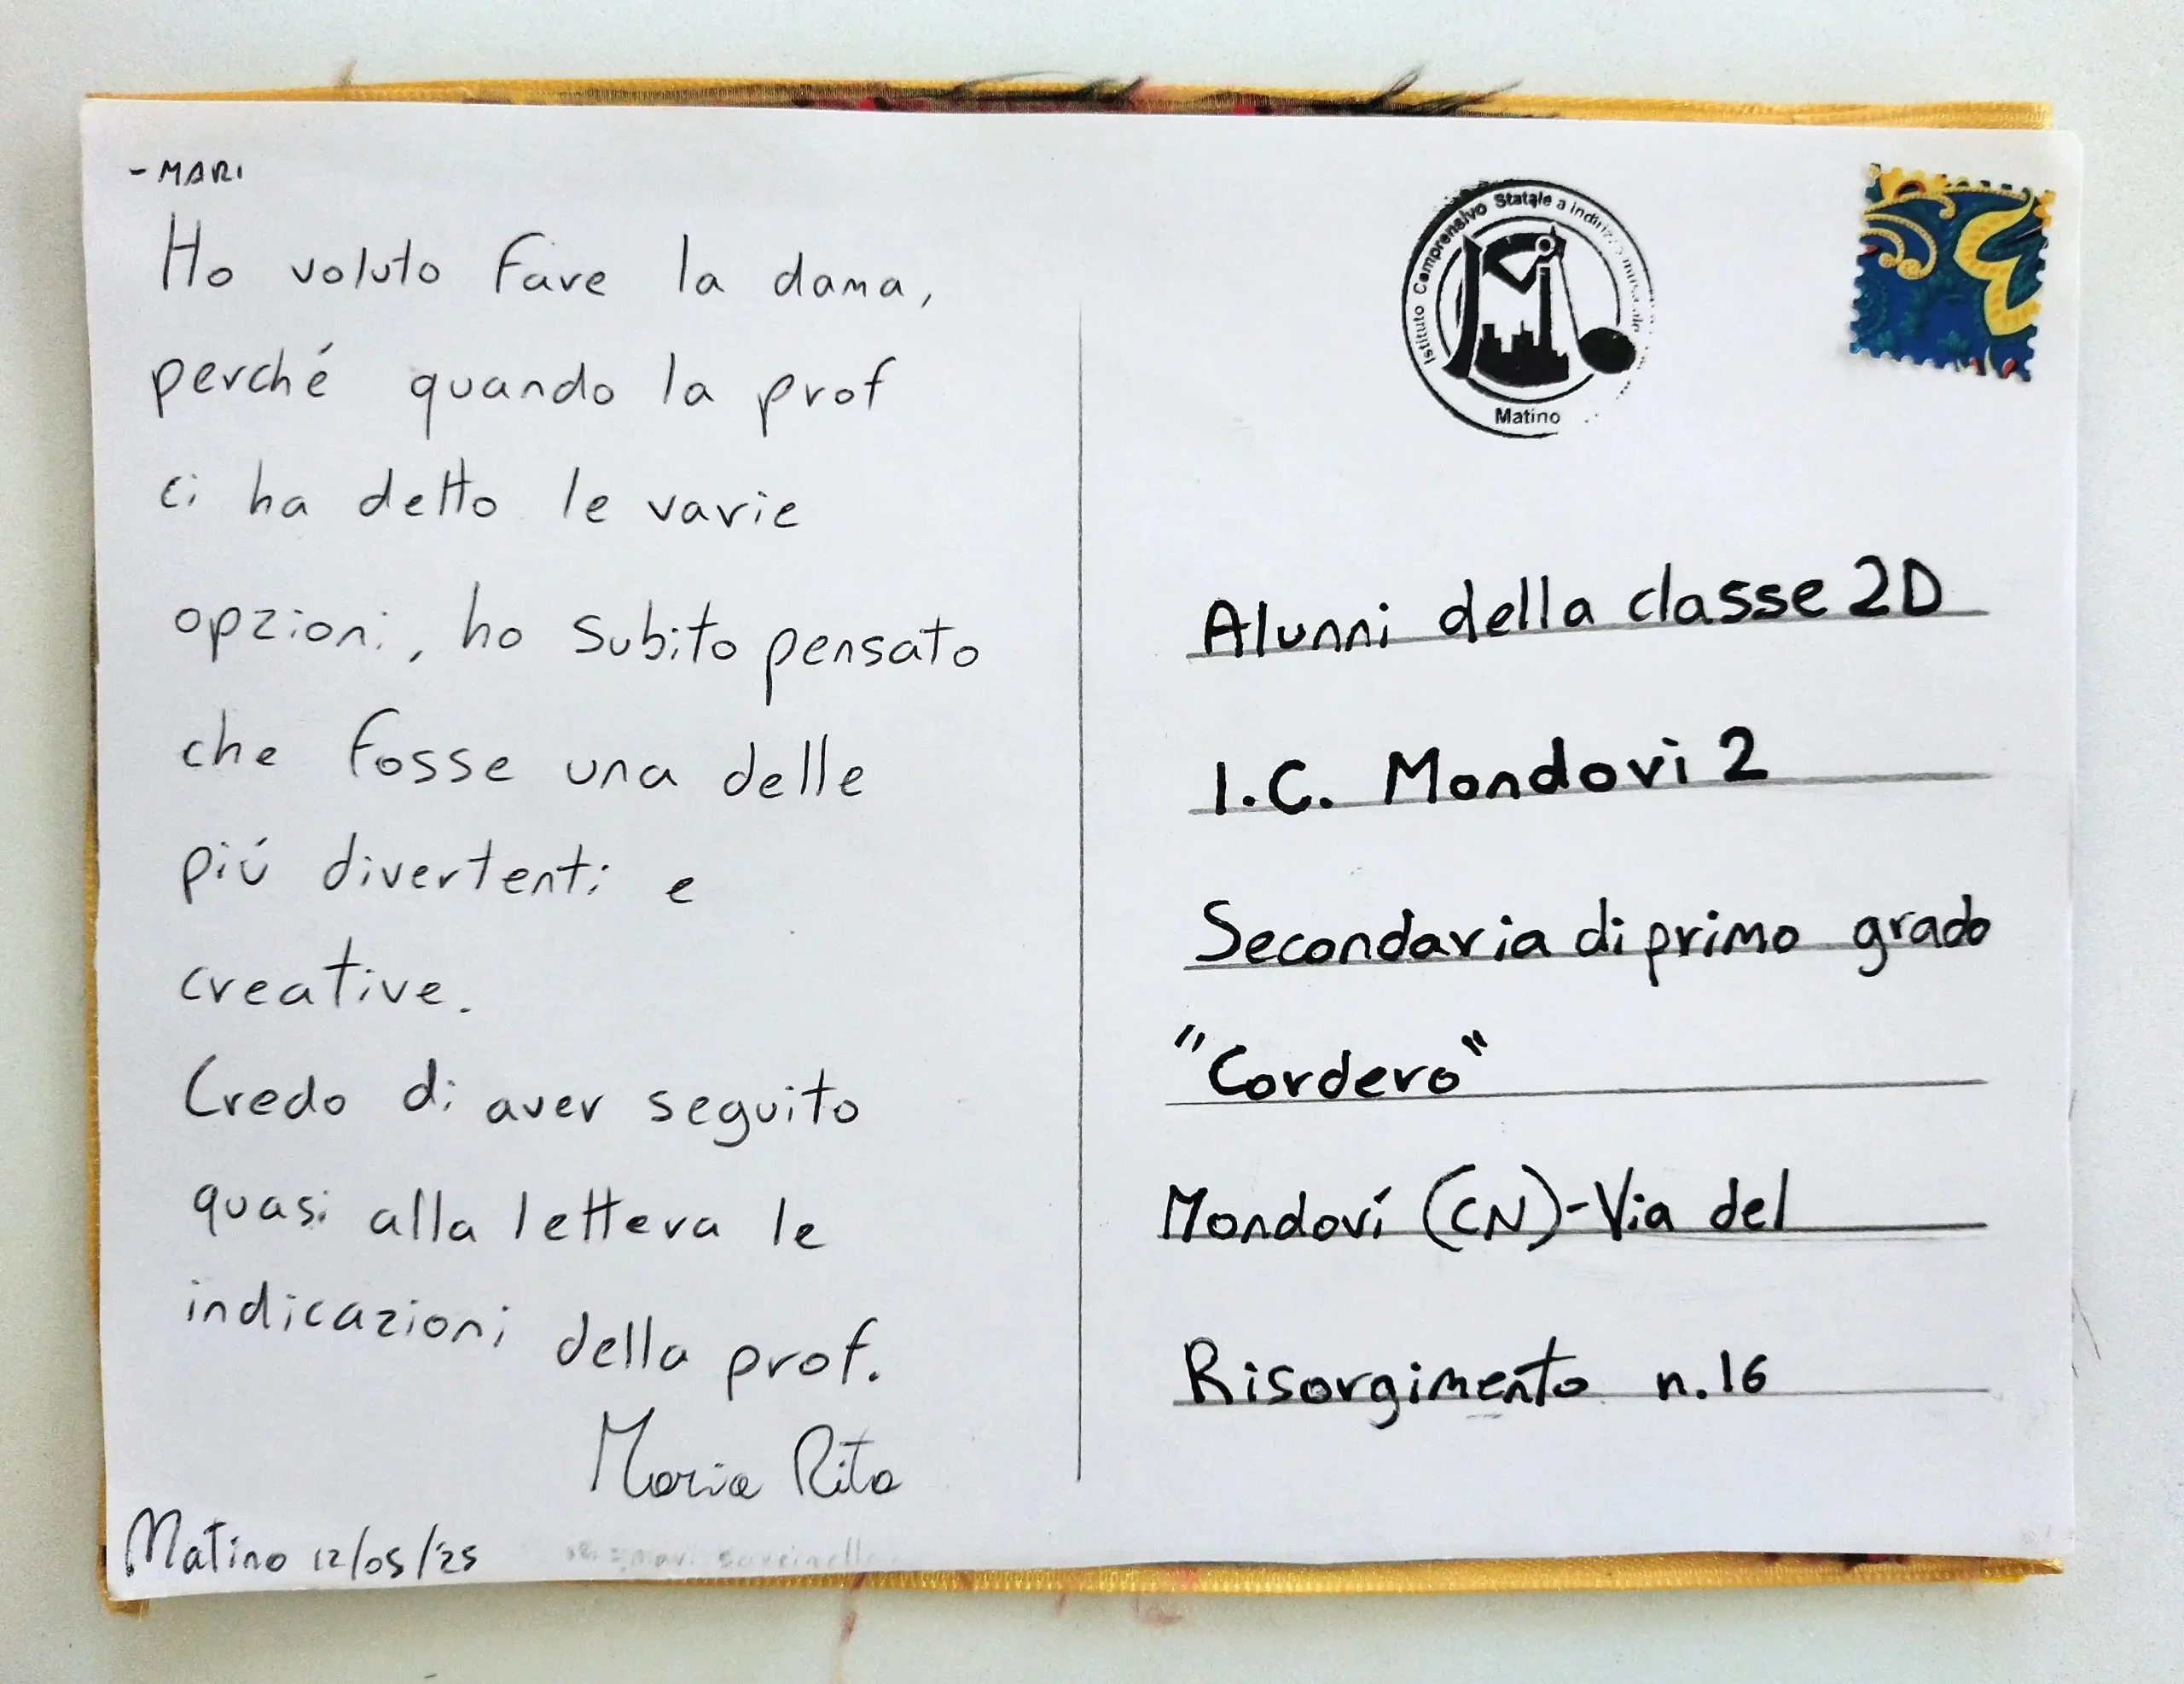 - MARI
Ho voluto fare la dama,
perché quando la prof
ci ha detto le varie
opzioni, ho subito pensato
che fosse una delle
piú divertenti e
creative.
Credo di aver seguito
quasi alla lettera le
indicazioni della prof.
Maria Rita
Matino 12/05/'25
Istituto Comprensivo Statale a indirizzo musicale
Matino
Alunni della classe 2D
I.C. Mondovì 2
Secondaria di primo grado
"Cordero"
Mondoví (CN)-Via del
Risorgimento n.16